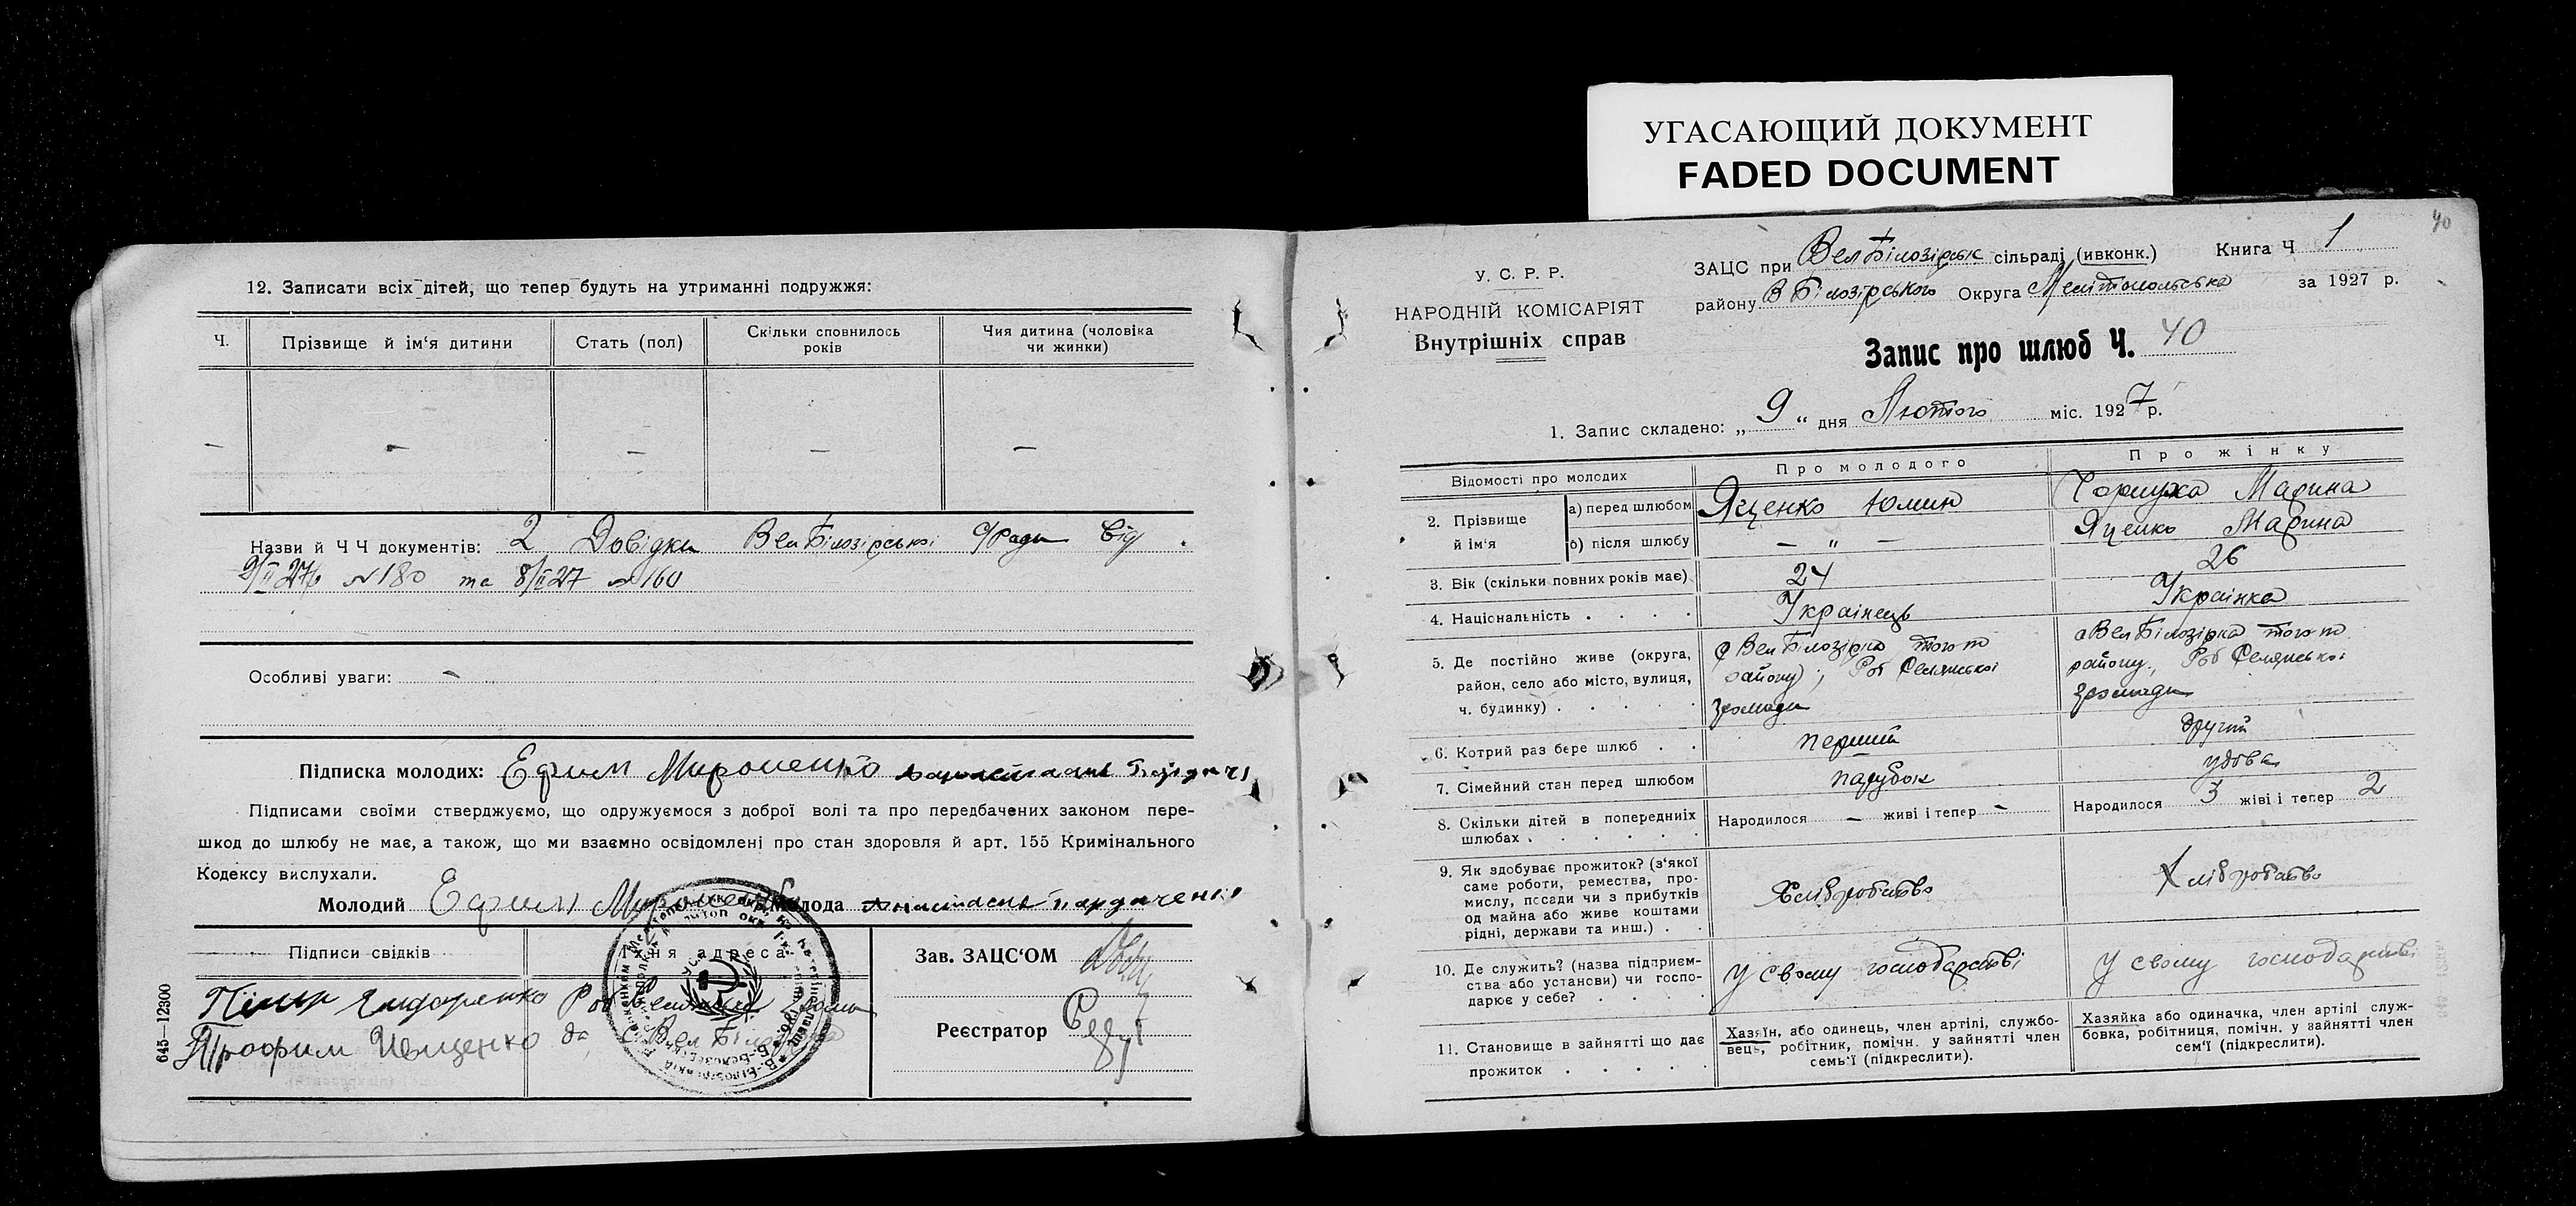 УГАСАЮЩИЙ ДОКУМЕНТ
FADED DOCUMENT
12. Записати всіх дітей, що тепер будуть на утриманні подружжя:
Ч.
Прізвище й ім'я дитини
Стать (пол)
Скільки сповнилось
років
Чия дитина (чоловіка
чи жинки)
— — — — —
Назви й Ч Ч документів: 2 Довідки Вел Білозірської С/Ради від
9/II 27р №180 та 8/II 27 №160
Особливі уваги: —
Підписка молодих: Ефим Мироненко
Підписами своїми стверджуємо, що одружуємося з доброї волі та про передбачених законом пере-
шкод до шлюбу не має, а також, що ми взаємно освідомлені про стан здоровля й арт. 155 Кримінального
Кодексу вислухали.
Молодий Ефим Мироненко Молода Анастасия
Підписи свідків
Їхня адреса
Зав. ЗАЦС'ОМ
Реєстратор
Трофим Ищенко
с Вел Білозірка
645—12300
40
У. С. Р. Р.
НАРОДНІЙ КОМІСАРІЯТ
Внутрішніх справ
ЗАЦС при Вел Білозірськ сільраді (ивконк.) Книга Ч 1
району В Білозірського Округа Мелітопольська за 1927 р.
Запис про шлюб Ч. 40
1. Запис складено: „ 9 " дня Лютого міс. 1927 р.
Відомості про молодих
Про молодого
Про жінку
2. Прізвище
й ім'я
а) перед шлюбом
Яценко Юмин
Марина
б) після шлюбу
— " —
Яценко Марина
3. Вік (скільки повних років має)
24
26
4. Національність . . . .
Українець
Українка
5. Де постійно живе (округа,
район, село або місто, вулиця,
ч. будинку) . . . . .
с Вел Білозірка того ж
району; Роб Селянської
громади
с Вел Білозірка того ж
району, Роб Селянської
громади
6. Котрий раз бере шлюб . .
перший
другий
7. Сімейний стан перед шлюбом
парубок
удова
8. Скільки дітей в попередніх
шлюбах . . . . . .
Народилося — живі і тепер —
Народилося 3 живі і тепер 2
9. Як здобуває прожиток? (з'якої
саме роботи, ремества, про-
мислу, посади чи з прибутків
од майна або живе коштами
рідні, держави та инш.) . .
Хліборобство
Хліборобство
10. Де служить? (назва підприєм-
ства або установи) чи госпо-
дарює у себе? . . . .
У свому господарстві
У свому господарстві
11. Становище в зайнятті що дає
прожиток . . . . .
Хазяїн, або одинець, член артілі, службо-
вець, робітник, помічн. у зайнятті член
семь'ї (підкреслити).
Хазяйка або одиначка, член артілі служ-
бовка, робітниця, помічн. у зайнятті член
сем'ї (підкреслити).